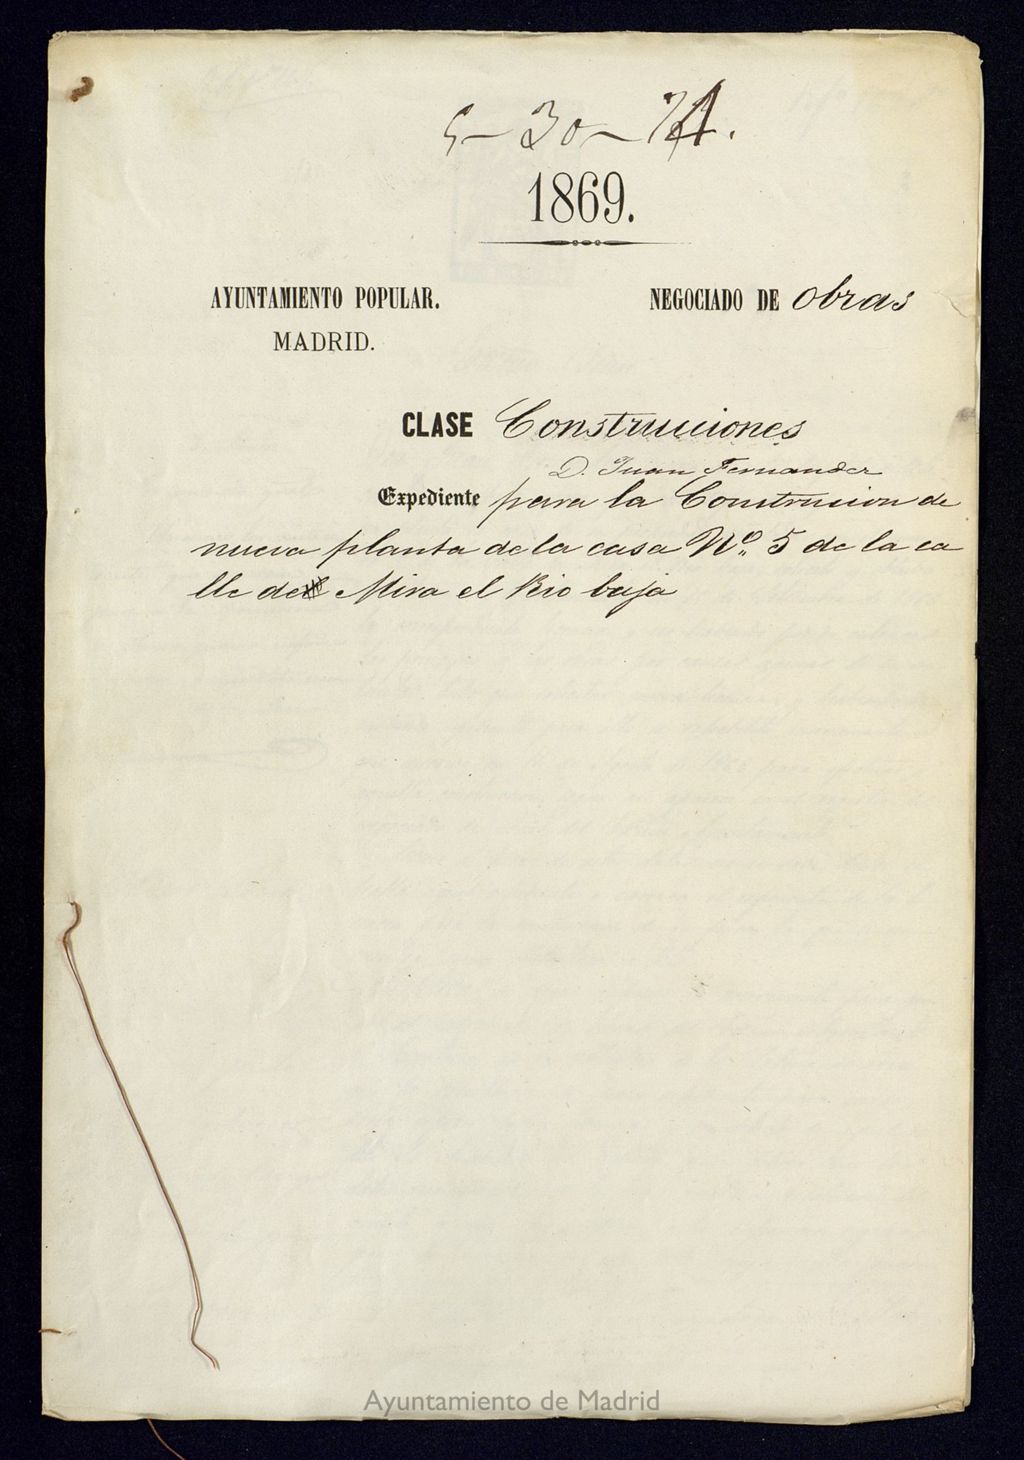 5-30-74.
1869.
AYUNTAMIENTO POPULAR.
MADRID.
NEGOCIADO DE obras
CLASE Construciones
D. Juan Fernandez
Expediente para la Construcion de
nueva planta de la casa Nº 5 de la ca
lle del Mira el Rio baja
Ayuntamiento de Madrid